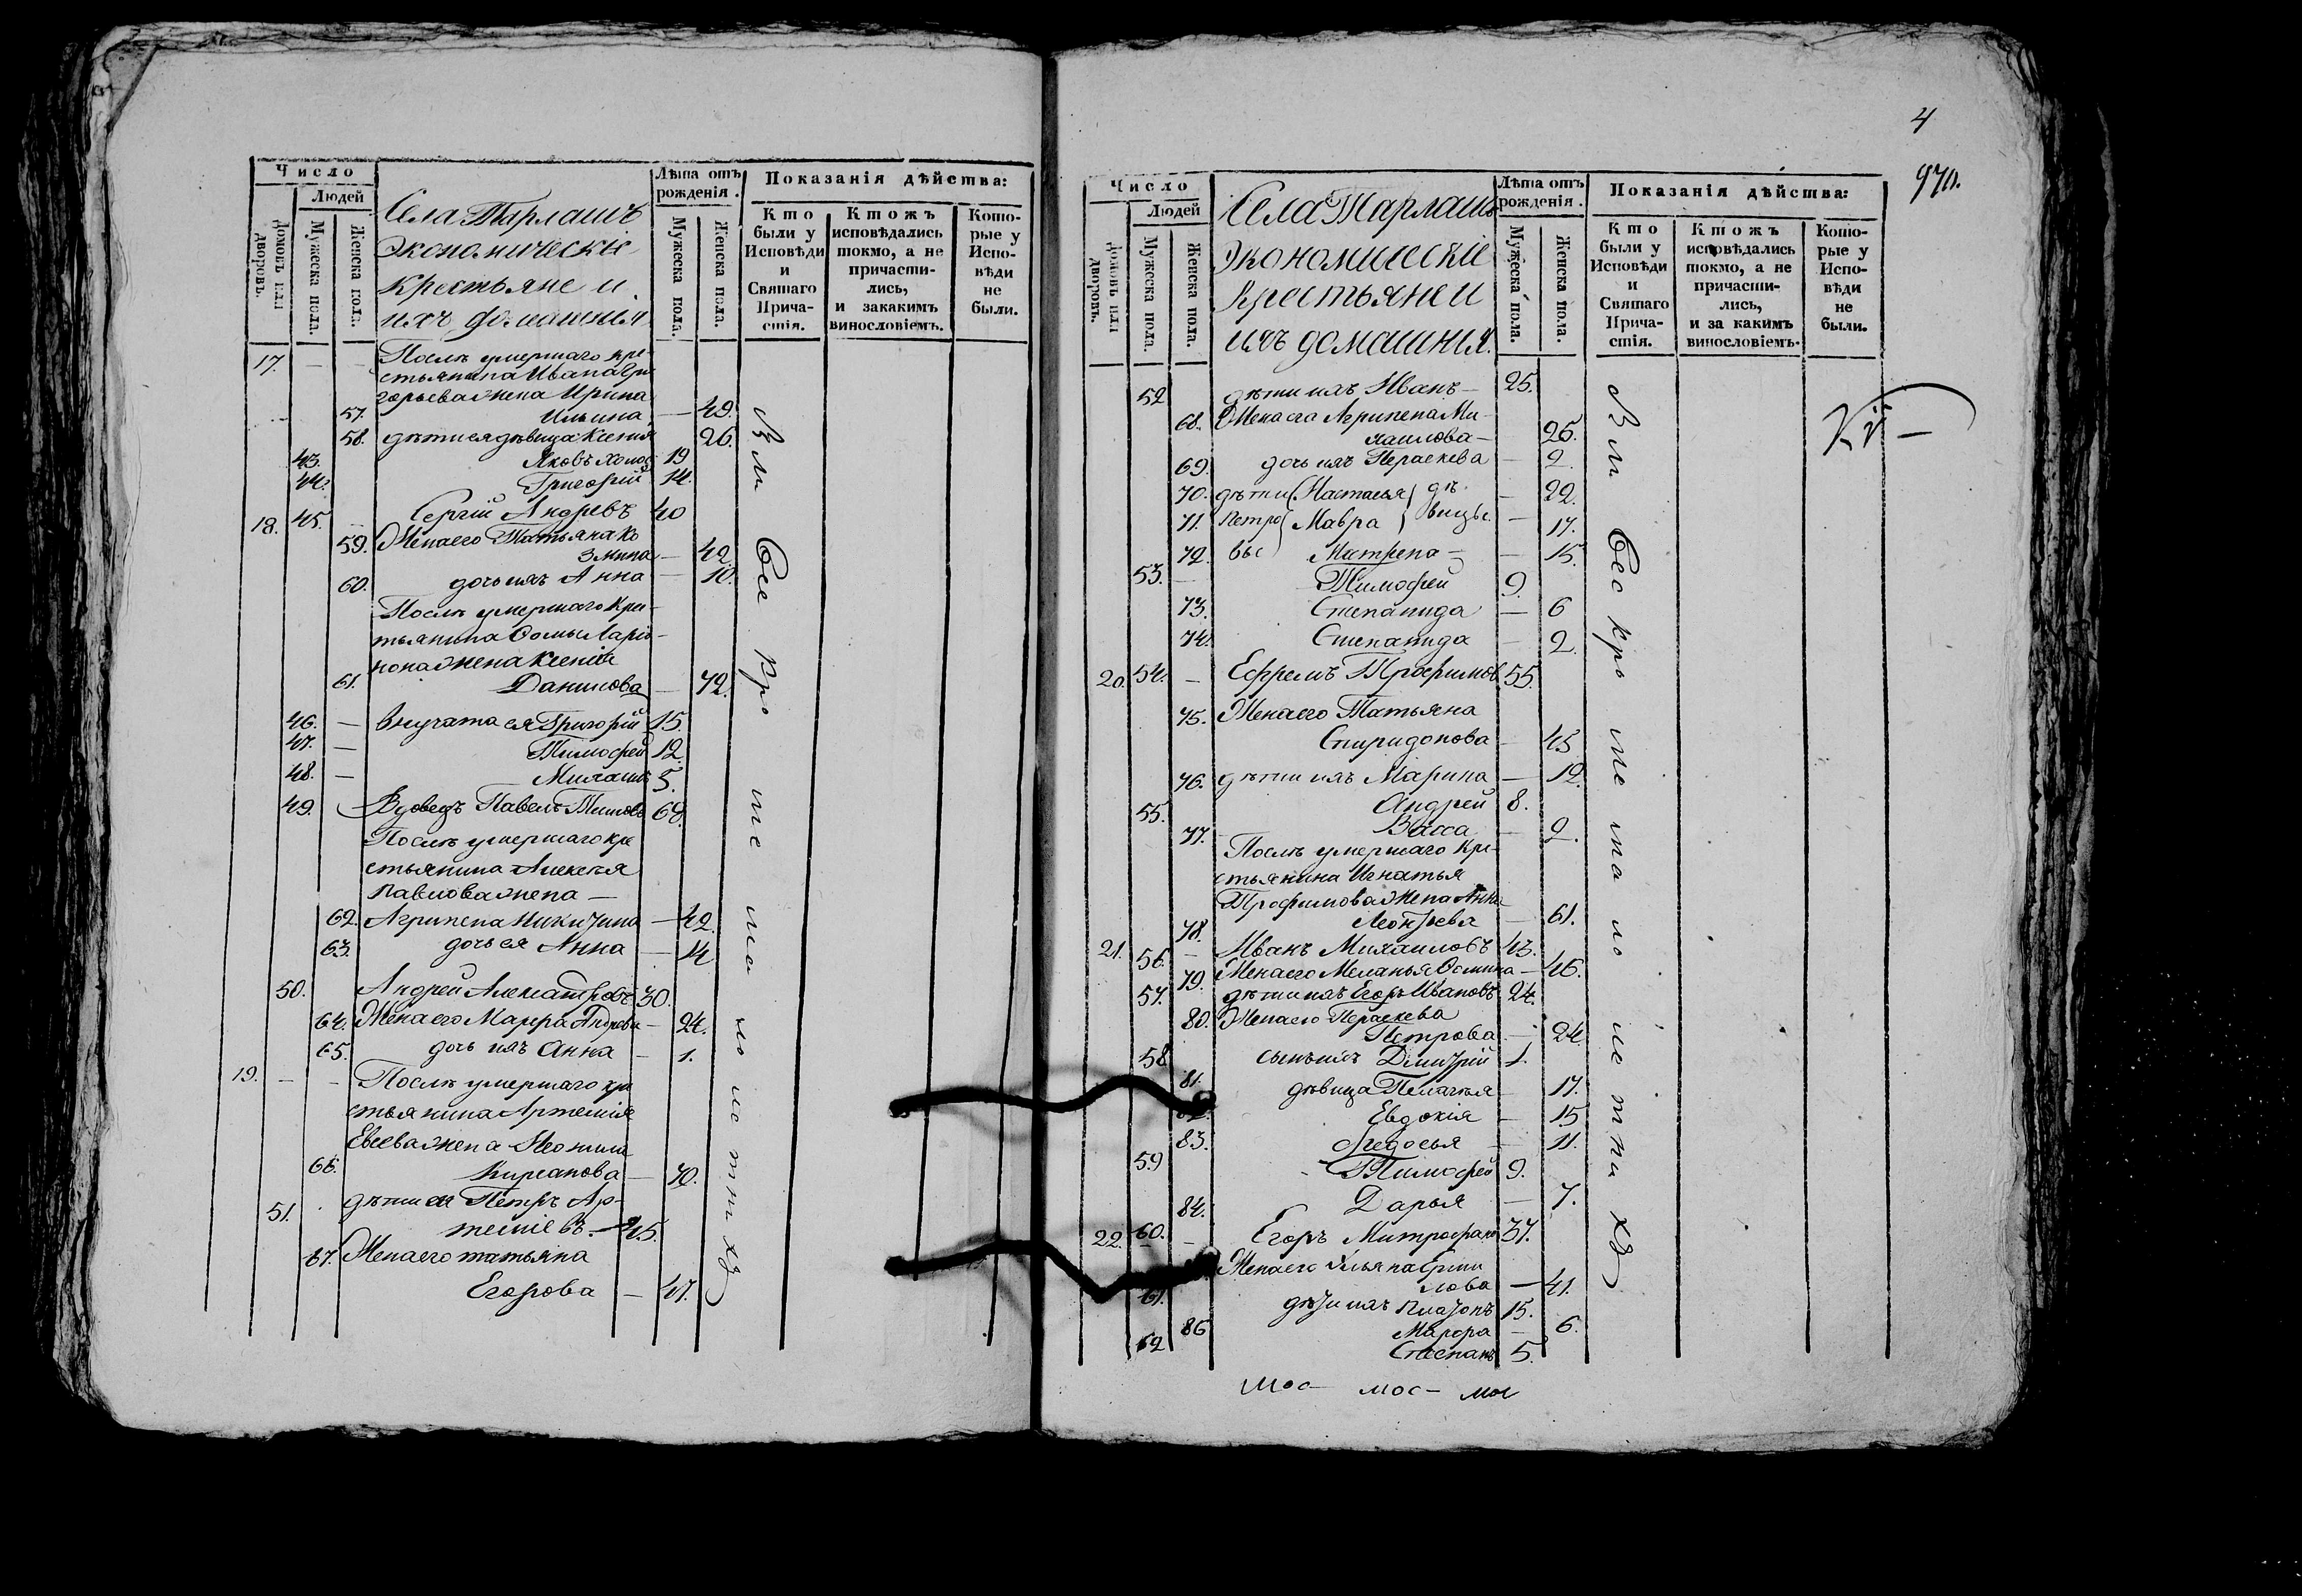 Число
Людей
Домовъ или дворовъ.
Мужеска пола.
Женска пола.
Села Тарлашъ
Экономическiе
крестьяне и
ихъ домашнiя
Лѣта отъ рожденiя.
Мужеска пола.
Женска пола.
Показанiя дѣйства:
Кто были у Исповѣди и Святаго Прича-стiя.
Ктожъ исповѣдались токмо, а не причасти-лись, и закакимъ винословiемъ.
Кото-рые у Испо-вѣди не были.
17. — — Послѣ умершаго кре-
стьянина Ивана Гри
горьева жена Ирина
57. Ильина — 49.
58. дѣти ея дѣвица Ксенiя 26.
43. Яковъ холос 19
44. Григорiй 14.
18. 45. Сергiй Андревъ 40
59. Жена его Татьяна Ко
змина — 42.
60. дочь ихъ Анна — 10.
Послѣ умершаго Кре-
тьянина Ѳомы Ларiо-
нона жена Ксенiя
61. Данилова — 72.
46. — внучата ея Григорiй 15.
47. — Тимофей 12.
48. — Михаилъ 5.
49. Вдовецъ Павелъ 68.
Послѣ умершаго кре
стьянина Алексѣя
Павлова жена —
62. Агрипена Никитина — 42.
63. дочь ея Анна — 14
50. Андрей Александровъ 30.
64. Жена его Мавра Андрева — 24.
65. дочь ихъ Анна — 1.
19. — — Послѣ умершаго кре
стьянина Артемiя
Евсева жена Неонила
66. Кирсанова — 70.
51. дѣти ея Петръ Ар-
темiевъ. — 45.
67. Жена его татьяна
Егорова — 47.
Вси Все кро ме ма ло ле тни хъ
4
970.
Число
Людей
Домовъ или дворовъ.
Мужеска пола.
Женска пола.
Села Тарлашъ
Экономическiе
крестьяне и
ихъ домашнiя.
Лѣта отъ рожденiя.
Мужеска пола.
Женска пола.
Показанiя дѣйства:
Кто были у Исповѣди и Святаго Прича-стiя.
Ктожъ исповѣдались токмо, а не причасти-лись, и за какимъ винословiемъ.
Кото-рые у Испо-вѣди не были.
52 дѣти ихъ Иванъ — 25.
68. Жена его Агрипена Ми-
хаилова — 26.
69. дочь ихъ Пераскева — 2.
70. дѣти (Настасья) дѣ- — 22.
71. Петро (Мавра) вицы. — 17.
72. вы Матрена — — 15.
53. — Тимофей 9.
73. Степанида — 6
74. Степанида — 2.
20. 54. — Ефремъ Трофимов 55.
75. Жена его Татьяна
Спиридонова — 45
76. дѣти ихъ Марина — 12.
55. Андрей 8.
77. Васса — 2.
Послѣ умершаго кре-
стьянина Игнатья
Трофимова жена Анна
78. Леонтьева — 61.
21. 56. — Иванъ Михаиловъ 43.
79. Жена его Меланья Ѳомина — 46.
57. дѣти ихъ Егоръ Ивановъ 24.
80. Жена его Пераскева
Петрова — 24
58. сынъ ихъ Дмитрiй 1.
81. дѣвица Пелагѣя — 17.
Евдокiя — 15
83. Федосья — 11.
59 Тимофей 9.
84. Дарья — 7.
22. 60. — Егоръ Митрофан 37.
Жена его Ульяна
лова — 41.
61. дѣти ихъ Платонъ 15.
86 Марфа — 6.
62 Степанъ 5.
мос— мос— мос